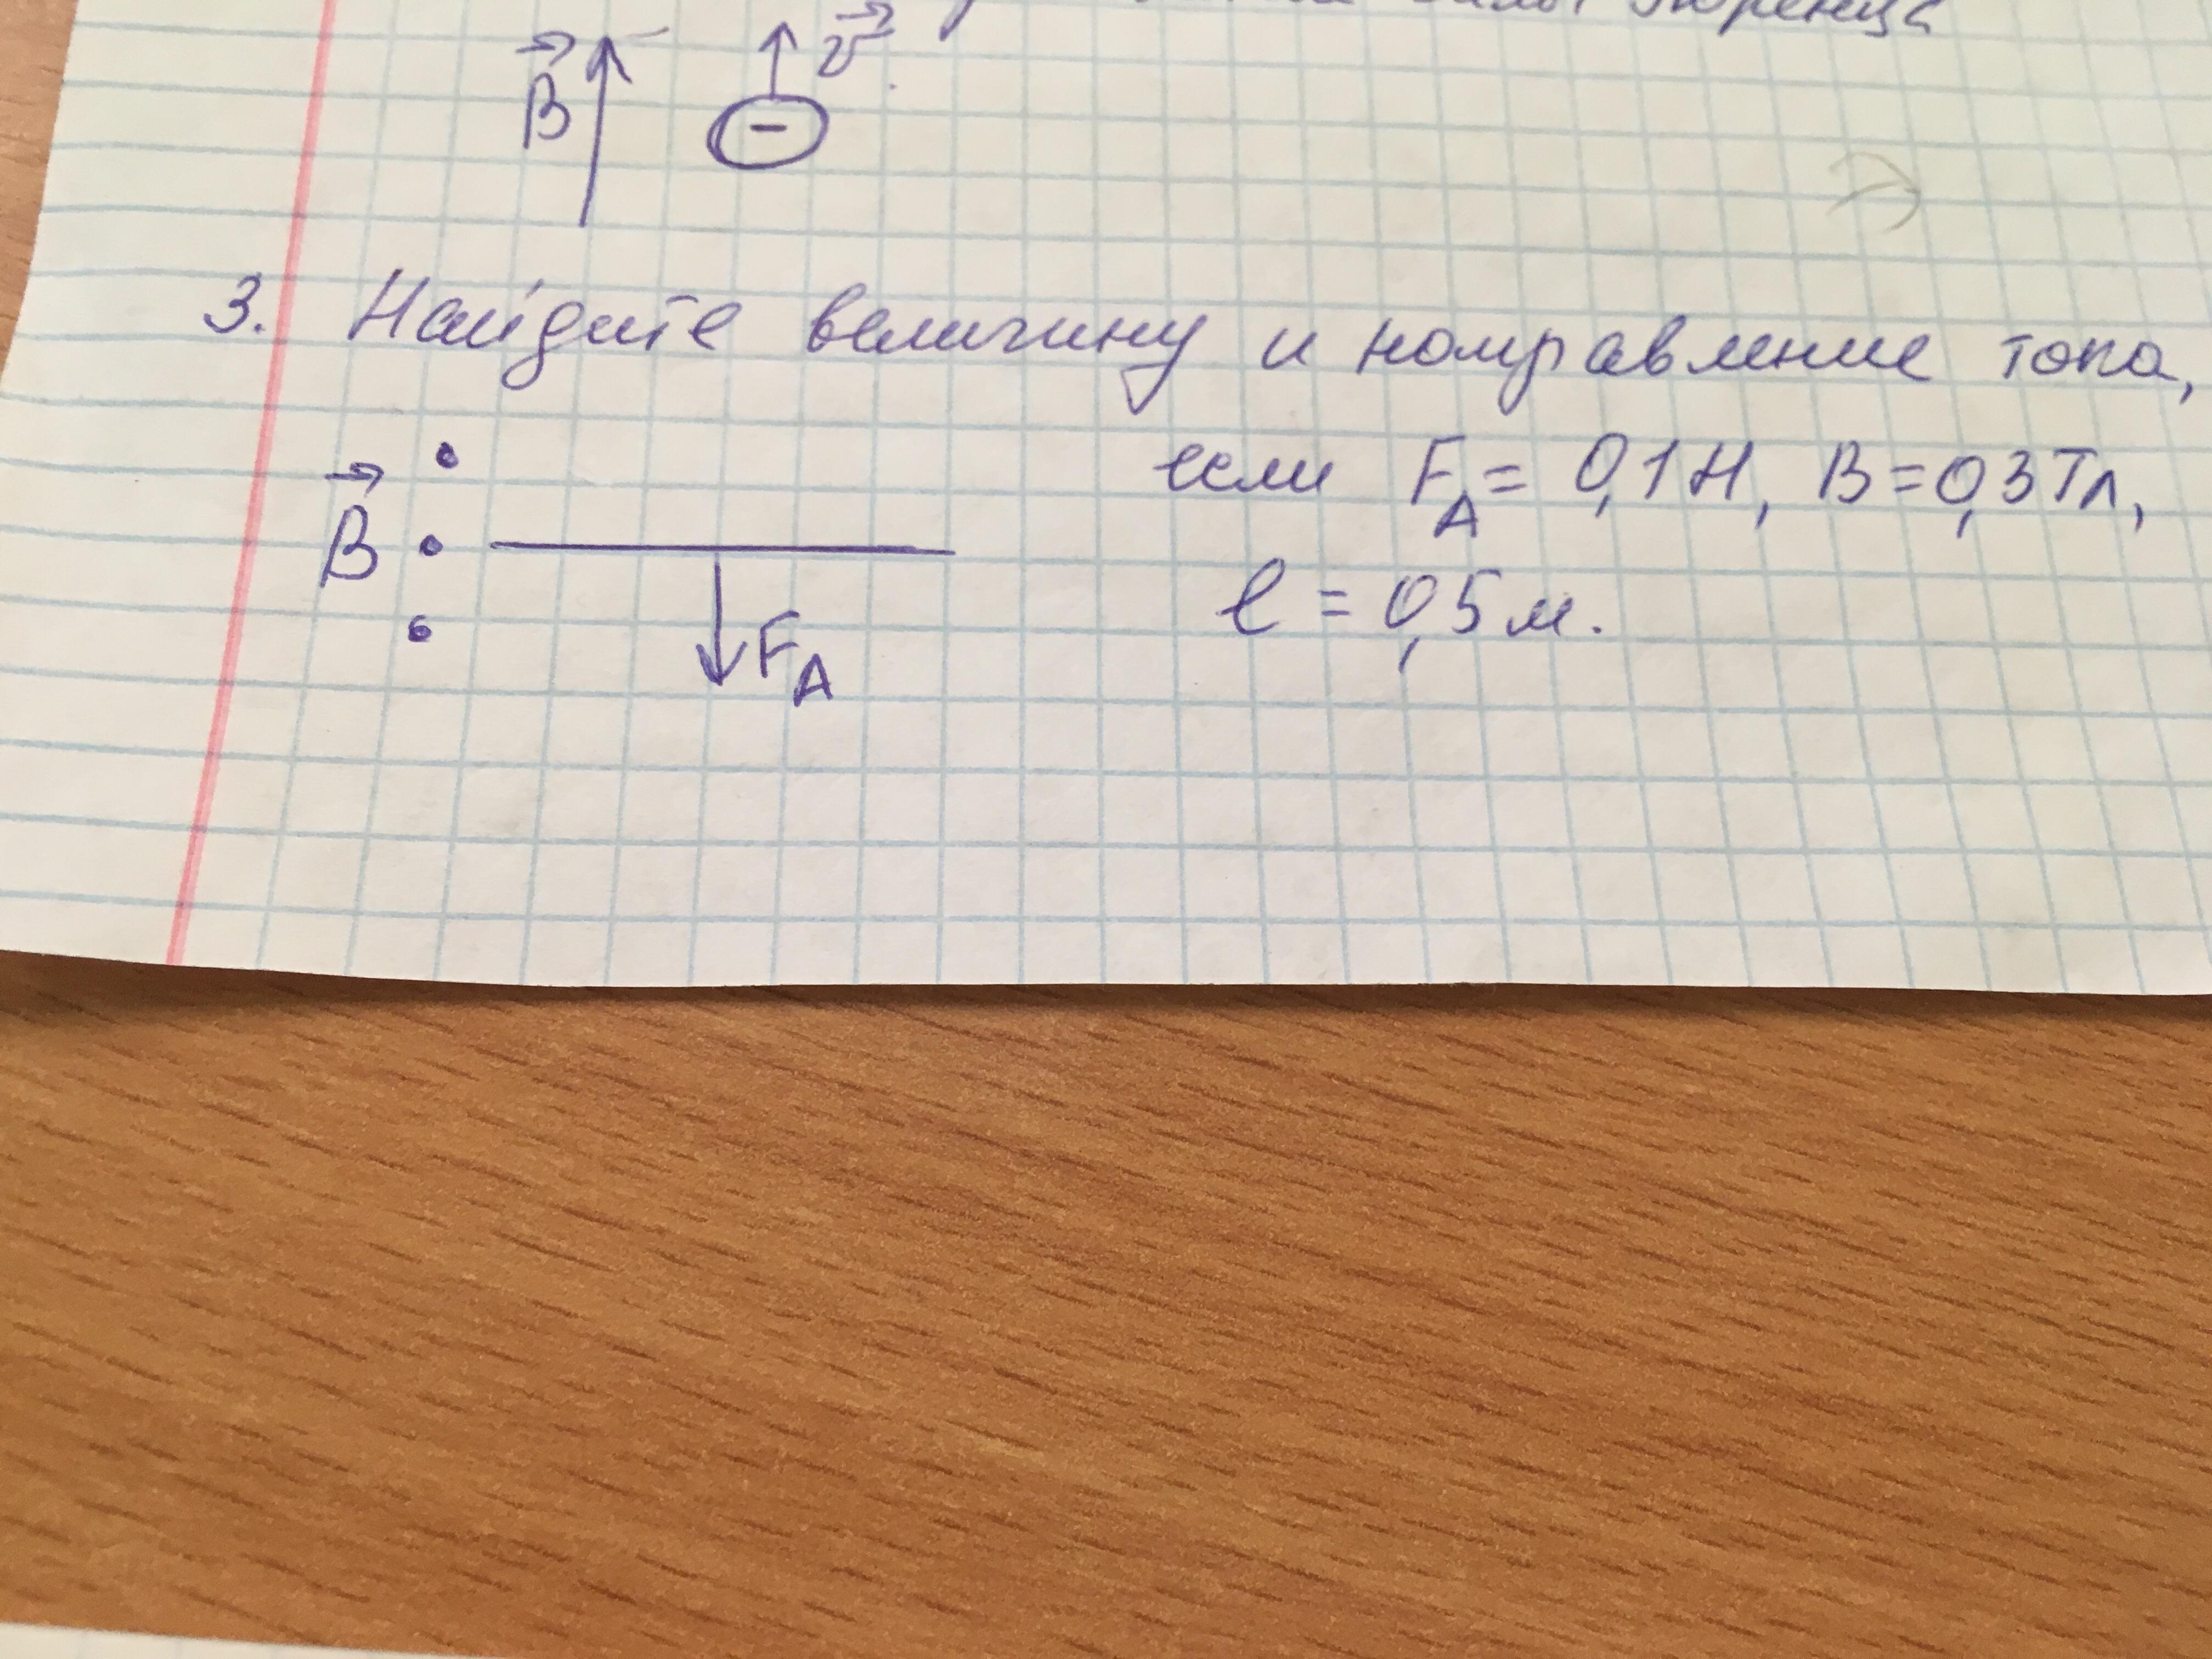 B v
−
3. Найдите величину и направление тока,
если F_A = 0,1 Н, B = 0,3 Тл,
B
l = 0,5 м.
F_A